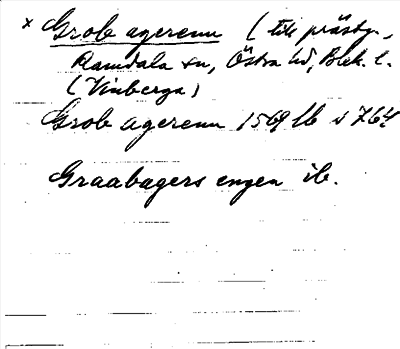 × Grob ageremu (till prästg.,
Ramdala sn, Östra hd, Blek. l.
(Vinberga)
Grob ageremu 1569 lb s 764
Graabagers engen ib.